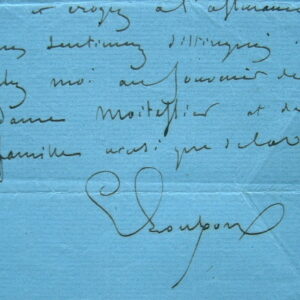 et croyez à l'assurance
mes sentimens distingués.
lez moi au souvenir de
Dame Moitessier et de
famille
E Loubon